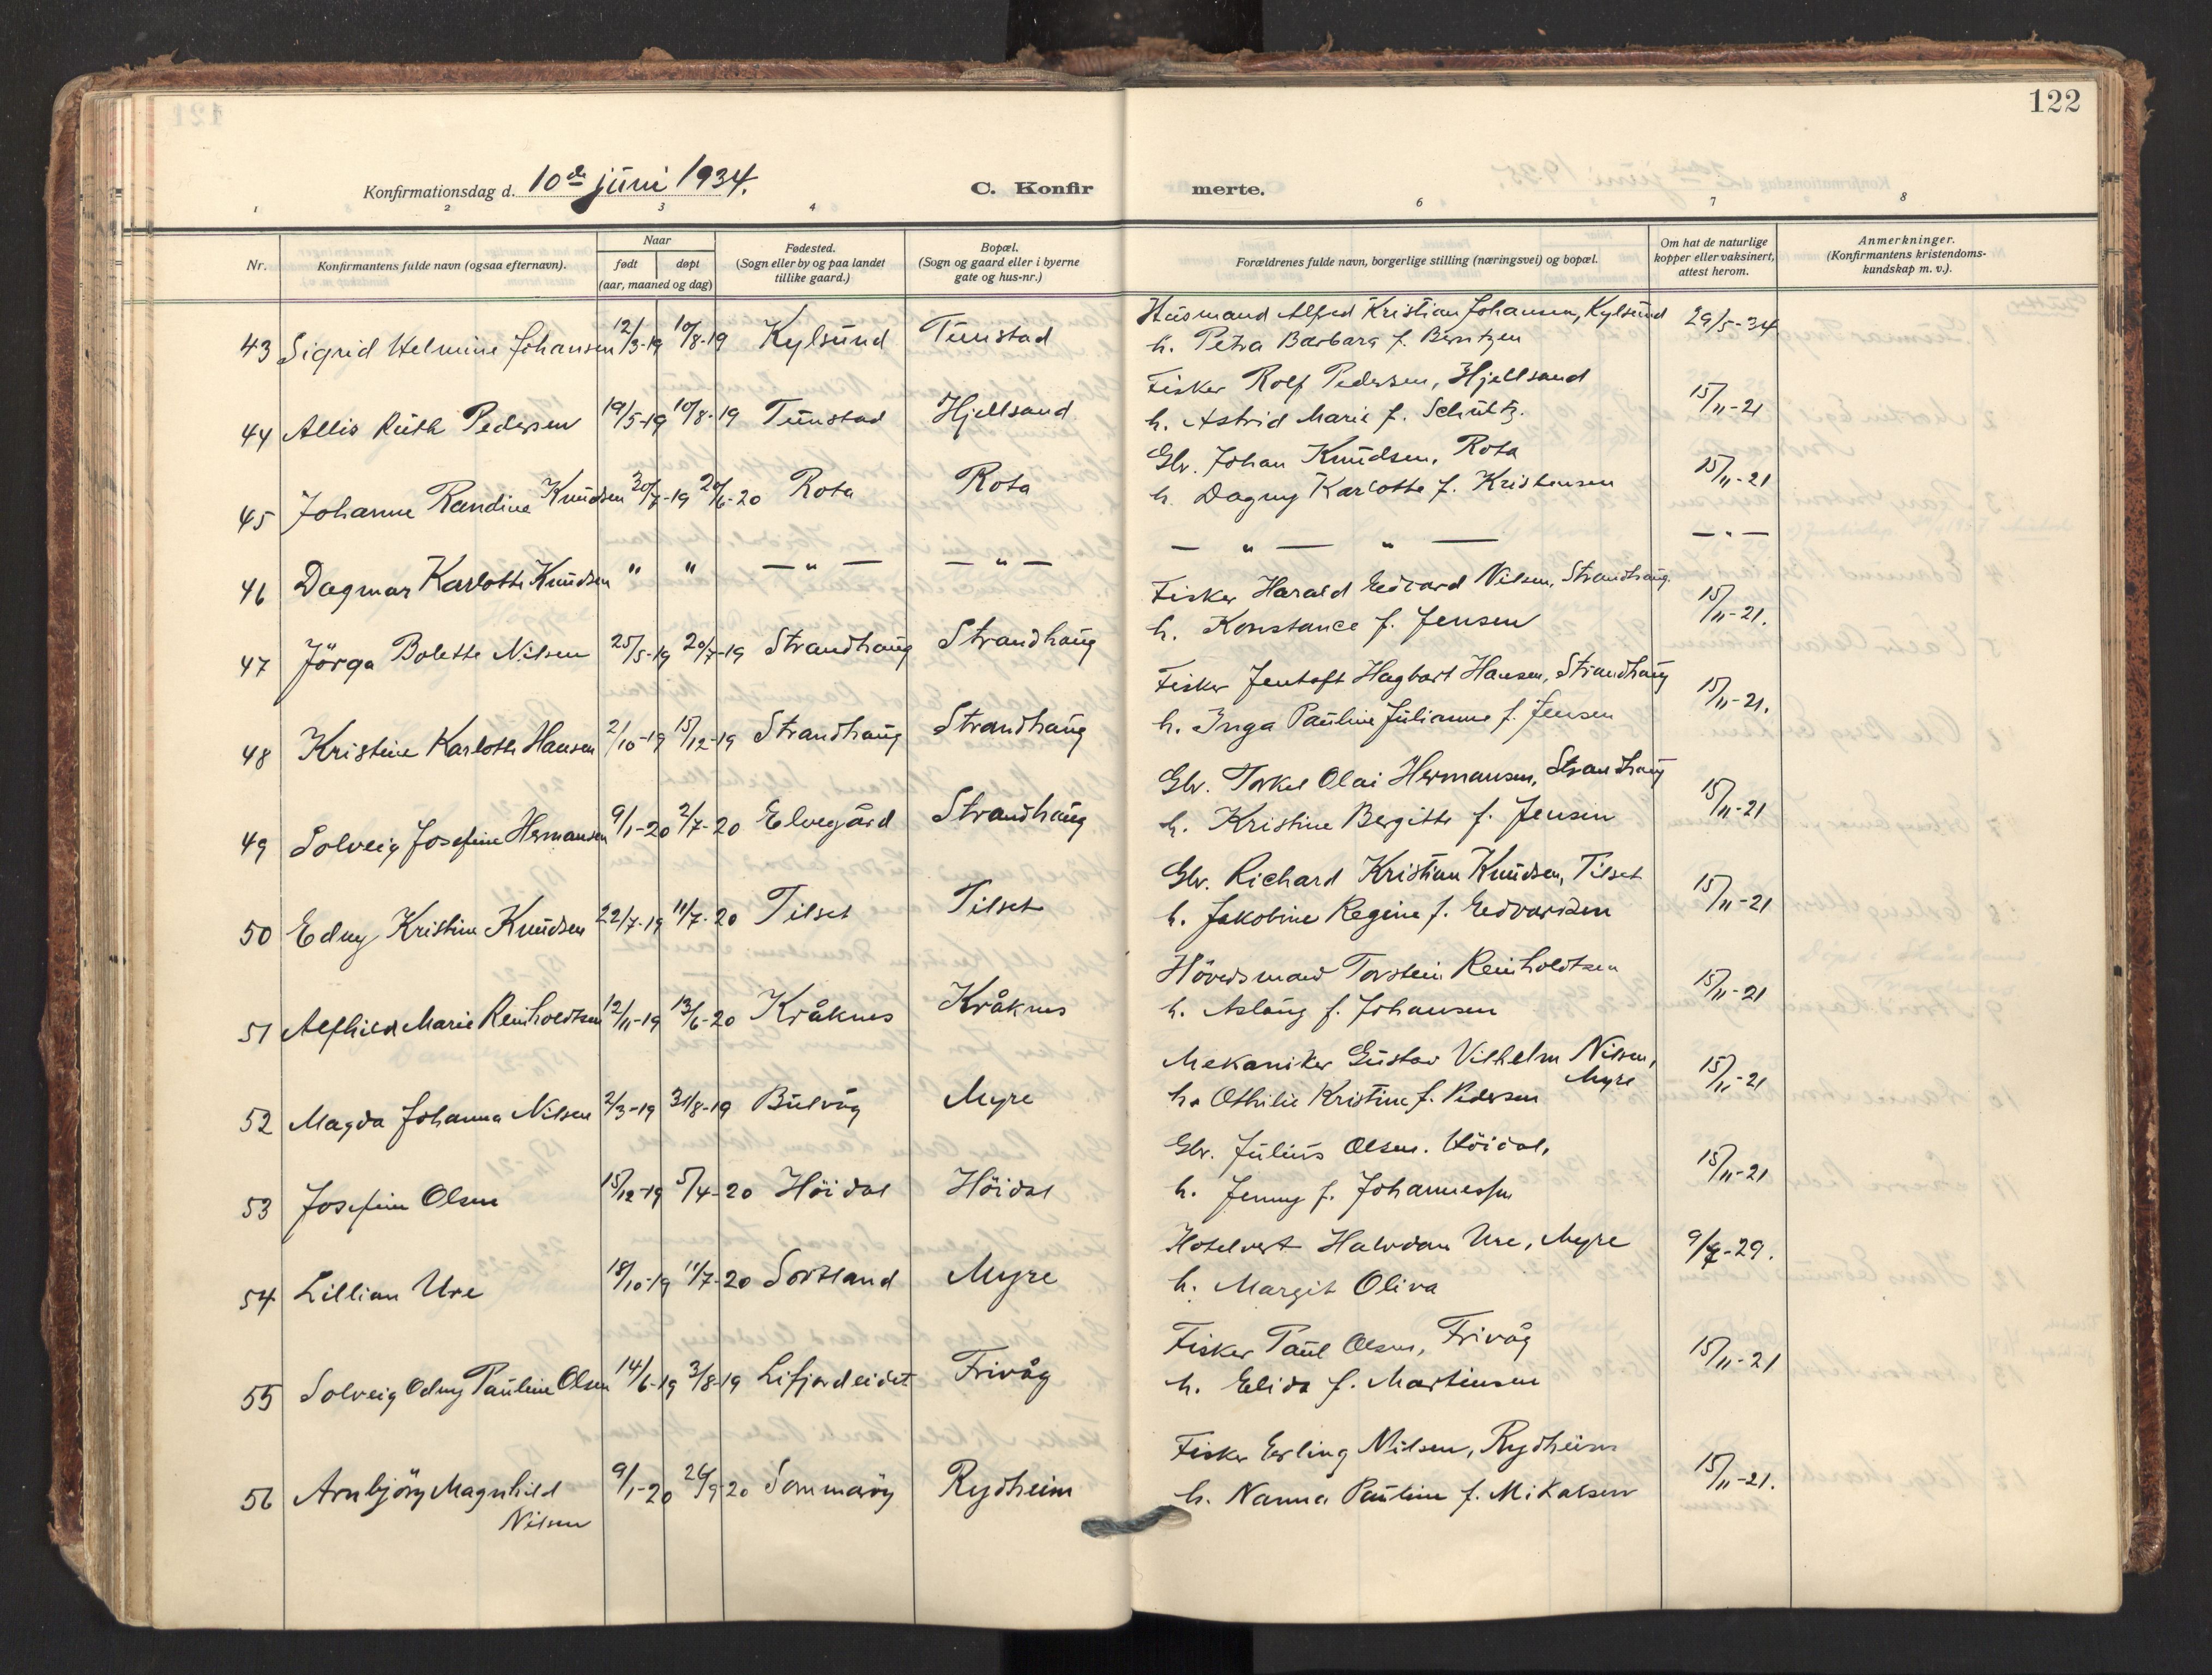 122
Konfirmationsdag d. 10de juni 1934.
C. Konfirmerte.
1 2 3 4 6 7 8
Nr. Konfirmantens fulde navn (ogsaa efternavn). Naar født døpt (aar, maaned og dag) Fødested. (Sogn eller by og paa landet tillike gaard.) Bopæl. (Sogn og gaard eller i byerne gate og hus-nr.) Forældrenes fulde navn, borgerlige stilling (næringsvei) og bopæl. Om hat de naturlige kopper eller vaksinert, attest herom. Anmerkninger. (Konfirmantens kristendoms-kundskap m. v.).
43 Sigrid Helmine Johansen 12/3-19 10/8-19 Kylsund Tunstad Husmand Alfred Kristian Johansen, Kylsund 29/5-34
h. Petra Barbara f. Berntzen
44 Allis Ruth Pedersen 19/5-19 10/8-19 Tunstad Hjellsand Fisker Rolf Pedersen, Hjellsand 15/11-21
h. Astrid Marie f. Schultz.
45 Johanne Randine Knudsen 30/7-19 20/6-20 Rota Rota Gbr. Johan Knudsen, Rota 15/11-21
h. Dagny Karlotte f. Kristensen
46 Dagmar Karlotte Knudsen " " — " — — " — — " — " — — " —
47 Jörga Bolette Nilsen 25/5-19 20/7-19 Strandhaug Strandhaug Fisker Harald Edvard Nilsen, Strandhaug. 15/11-21.
h. Konstance f. Jensen
48 Kristine Karlotte Hansen 2/10-19 15/12-19 Strandhaug Strandhaug Fisker Jentoft Hagbart Hansen, Strandhaug 15/11-21.
h. Inga Pauline Julianne f. Jensen
49 Solveig Josefine Hermansen 9/1-20 2/7-20 Elvegård Strandhaug Gbr. Torkel Olai Hermansen, Strandhaug 15/11-21
h. Kristine Bergitte f. Jensen
50 Edny Kristine Knudsen 22/7-19 11/7-20 Tilset Tilset Gbr. Richard Kristian Knudsen, Tilset 15/11-21
h. Jakobine Regine f. Edvardsen
51 Alfhild Marie Reinholdtsen 12/11-19 13/6-20 Kråknes Kråknes Hövedsmand Torstein Reinholdtsen 15/11-21
h. Aslaug f. Johansen
52 Magda Johanna Nilsen 2/3-19 31/8-19 Bulvåg Myre Mekaniker Gustav Vilhelm Nilsen, Myre 15/11-21
h. Othilie Kristine f. Pedersen
53 Josefine Olsen 15/12-19 5/4-20 Höidal Höidal Gbr. Julius Olsen. Höidal, 15/11-21
h. Jenny f. Johannessen
54 Lillian Ure 18/10-19 11/7-20 Sortland Myre Hotelvert Halvdan Ure, Myre
h. Margit Oliva
55 Solveig Odny Pauline Olsen 14/6-19 3/8-19 Lifjordeidet Frivåg Fisker Paul Olsen, Frivåg 15/11-21
h. Elida f. Martinsen
56 Arnbjörg Magnhild 9/1-20 26/9-20 Sommaröy Rydheim Fisker Erling Nilsen, Rydheim 15/11-21.
Nilsen h. Nanna Pauline f. Mikalsen